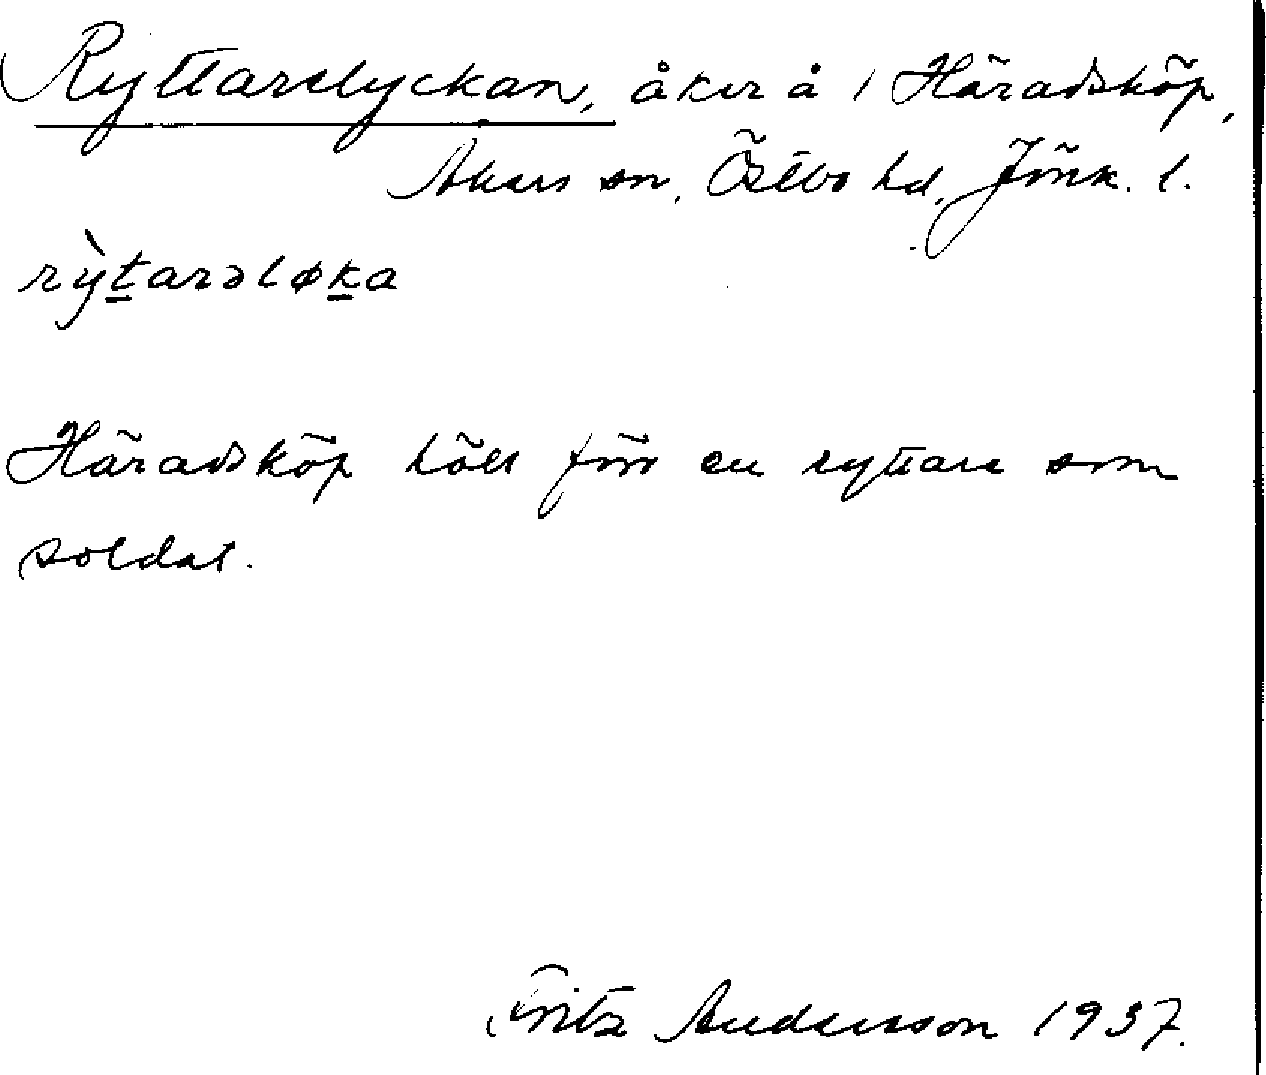 Ryttarelyckan, åker å 1 Häradsköp,
Akers sn, Östbo hd, Jönk. l.
rỳt̲arəløk̲a
Häradsköp höll för en ryttare som
soldat.
Fritz Andersson 1937.